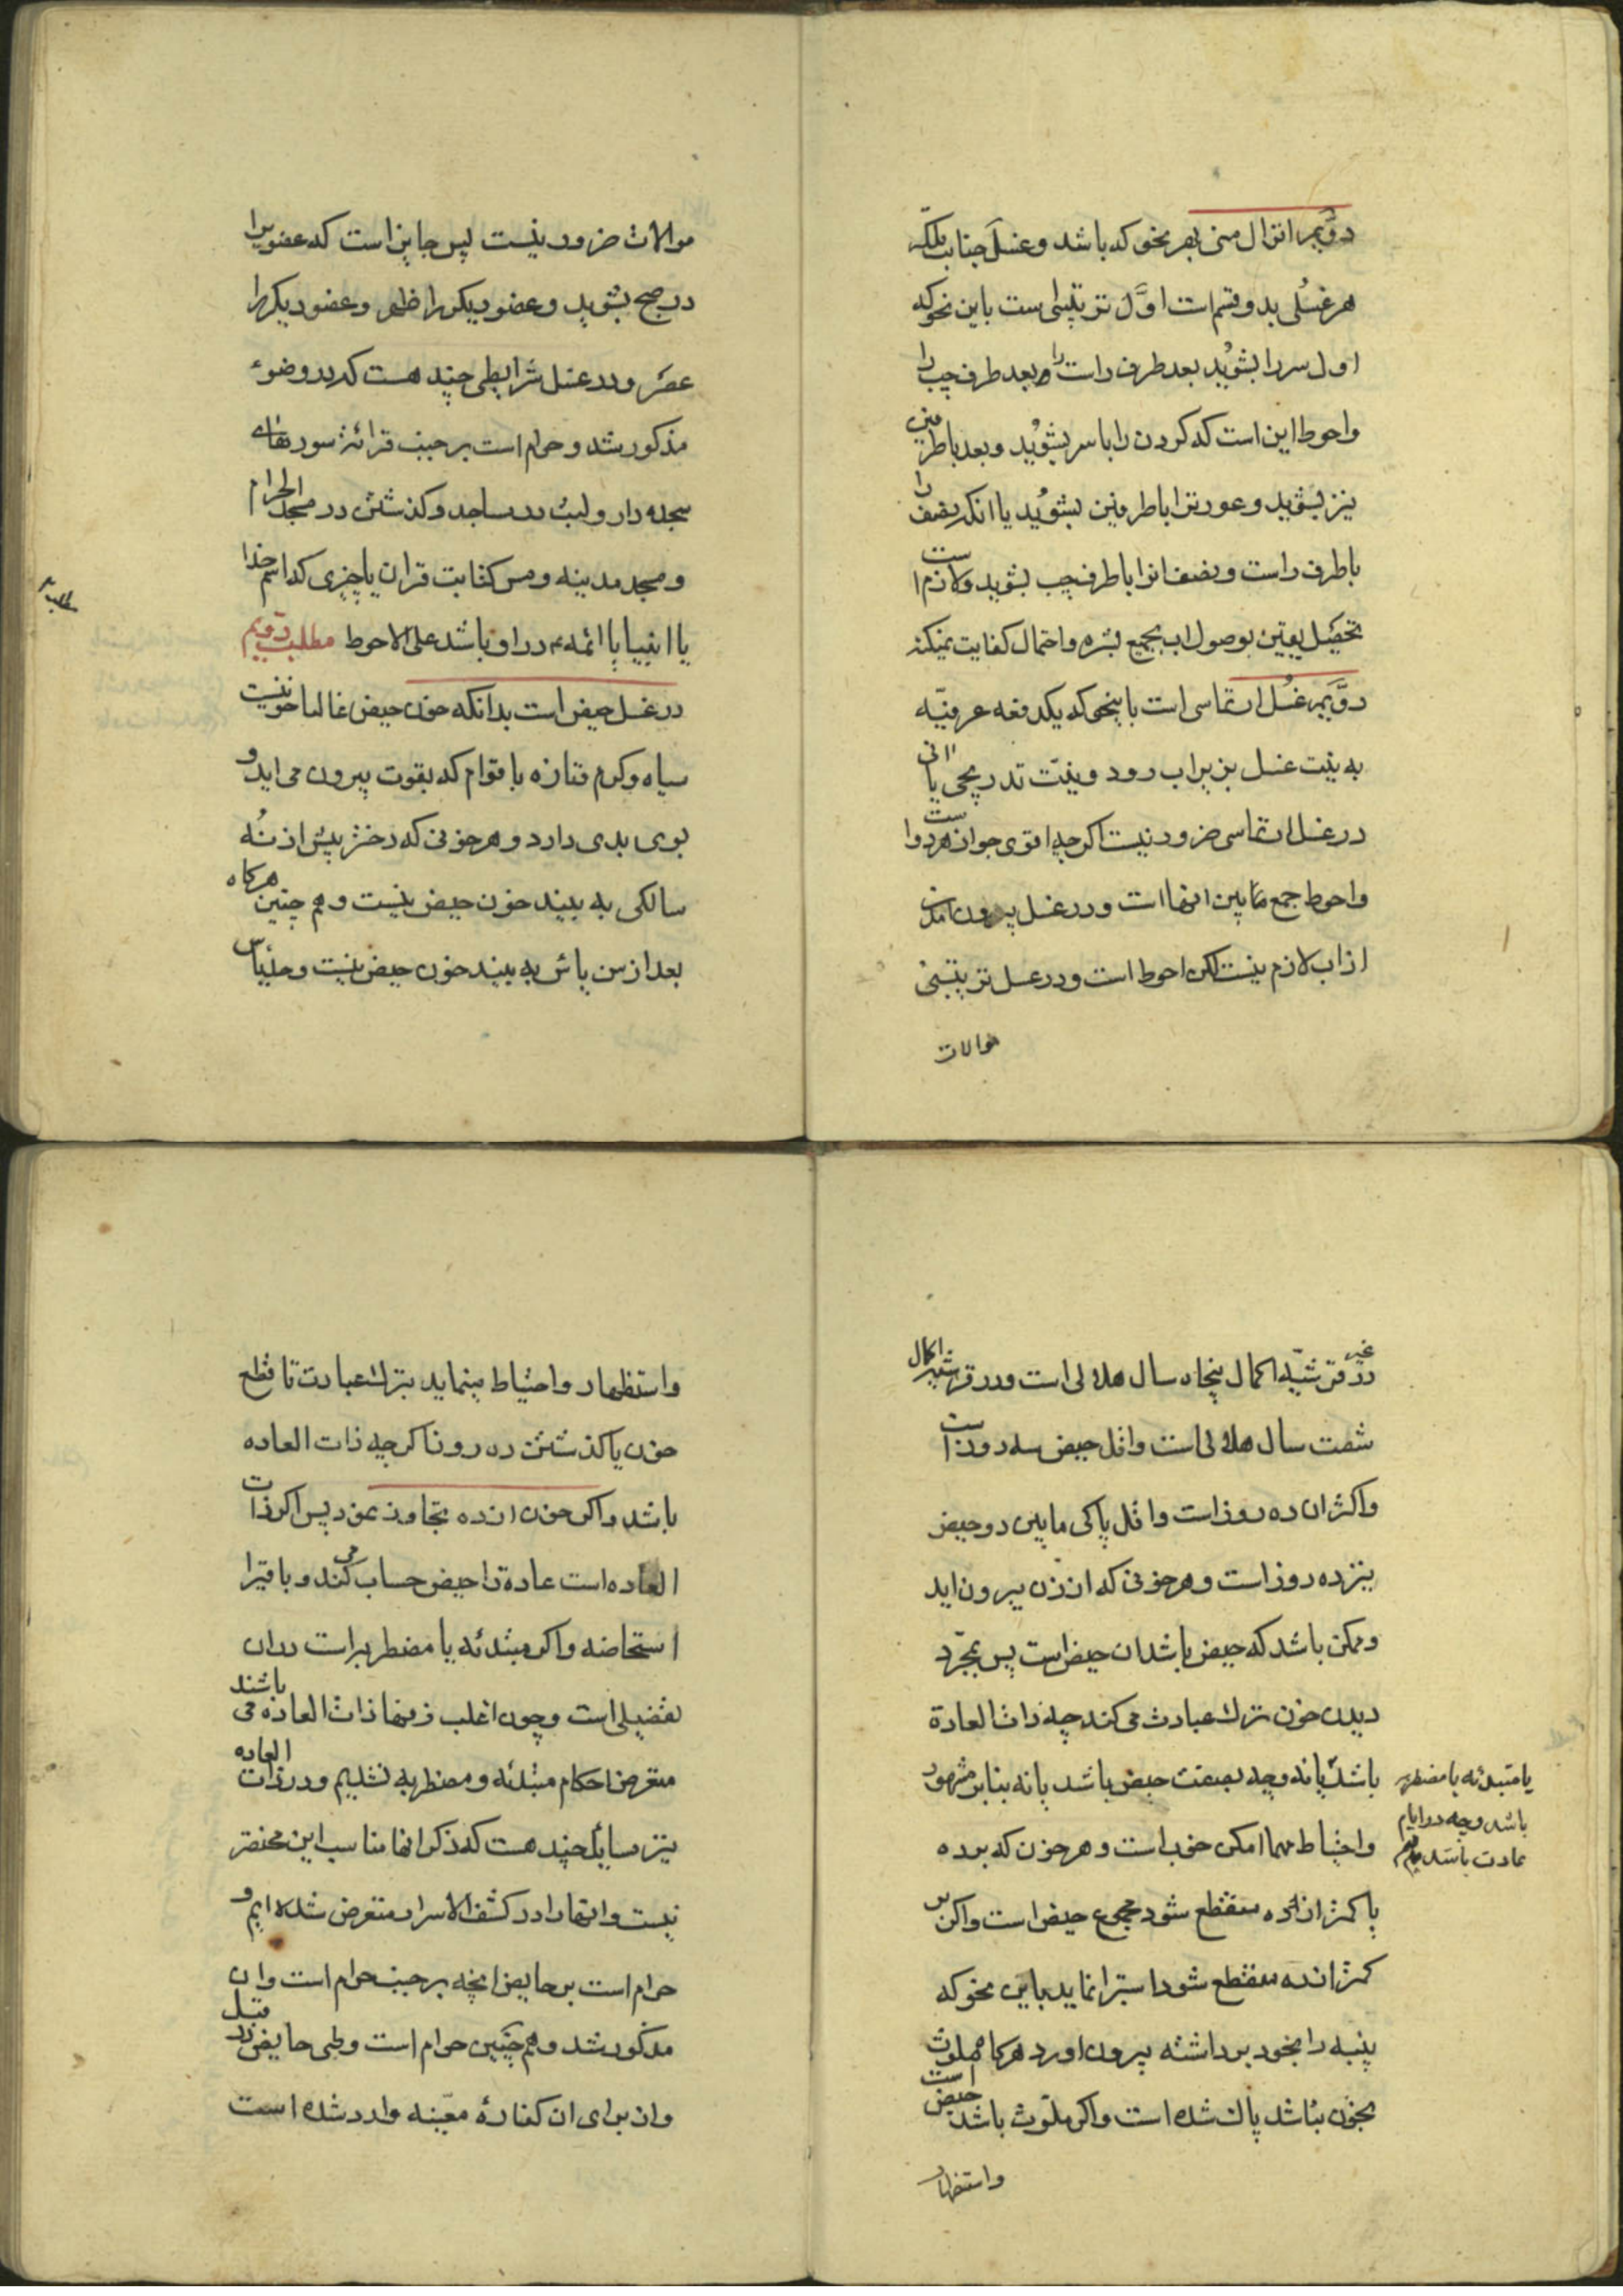 دوّیم انزال منی بهر نحو که باشد و غسل جنابت بلکه
هر غسلی بدو قسم است اوّل ترتیبی است باین نحو که
اول سر را بشوید بعد طرف راست را و بعد طرف چپ را
و احوط این است که کردن را با سر بشوید و بعد با طرفین
نیز بشوید و عورتنرا با طرفین بشوید یا انکه نصف را
با طرف راست و نصف انرا با طرف چپ بشوید و لازم است
تحصیل یقین بوصول اب بجمیع بشره و احتمال کفایت نمیکند
دوّیم غسل ارتماسی است باینحو که یکدفعه عرفیّه
به نیت غسل بزیر اب رود و نیّت تدریجی یا انی
در غسل ارتماسی ضرور نیست اکر چه اقوی جواز هر دو است
و احوط جمع مابین انها است و در غسل بیرون امدن
از اب لازم نیست لکن احوط است و در غسل ترتیبی
موالات
موالات ضرور نیست پس جایز است که عضویرا
در صبح بشوید و عضو دیکر را ظهر و عضو دیکر را
عصر و در غسل شرایطی چند هست که در وضوء
مذکور شد و حرام است بر جنب قرائة سورهای
سجده دار و لبث در مساجد و کذشتن در مسجد الحرام
و مسجد مدینه و مس کتابت قران یا چیزی که اسم خدا
یا انبیا یا ائمه ع در او باشد علی الاحوط مطلب دوّیم
در غسل حیض است بدانکه خون حیض غالبا خونیست
سیاه و کرم و تازه با قوام که بقوت بیرون می اید و
بوی بدی دارد و هر خونی که دختر پیش از نُه
سالکی به بیند خون حیض نیست و هم چنین هرکاه
بعد از سن یاس به بیند خون حیض نیست و حد یاس
مطلب ۲
در غیر قرشیّه اکمال پنجاه سال هلالی است و در قرشیه اکمال
شصت سال هلالی است و اقل حیض سه روز است
و اکثر ان ده روز است و اقل پاکی مابین دو حیض
نیز ده روز است و هر خونی که از زن بیرون اید
و ممکن باشد که حیض باشد ان حیض است پس بمجرّد
دیدن خون ترک عبادت می کند چه ذات العادة
باشد یا نه و چه بصفت حیض باشد یا نه بنابر مشهور
یا مبتدئه یا مضطربه
باشد و چه در ایام
عادت باشد یا نه
و احتیاط مهما امکن خوب است و هر خون که بر ده
یا کمتر از ده منقطع شود مجموع حیض است و اکر بر
کمتر از ده منقطع شود استبرا نماید باین نحو که
پنبه را بخود برداشته بیرون اورد هرکاه ملوث
بخون نباشد پاک شده است و اکر ملوّث باشد حیض است
و استظهار
و استظهار و احتیاط مینماید بترک عبادت تا قطع
خون یا کذشتن ده روز اکر چه ذات العاده
باشد و اکر خون از ده تجاوز نمود پس اکر ذات
العاده است عادة را حیض حساب می کند و باقیرا
استحاضه و اکر مبتدئه یا مضطربه است در ان
تفصیلی است و چون اغلب زنها ذات العاده می باشند
متعرض احکام مبتدئه و مضطربه نشدیم و در ذات العاده
نیز مسایل چند هست که ذکر انها مناسب این مختصر
نیست و انها را در کشف الاسرار متعرض شده ایم و
حرام است بر حایض انچه بر جنب حرام است و ان
مذکور شد و هم چنین حرام است وطی حایض در قبل
و از برای ان کفارهٔ معیّنه وارد شده است